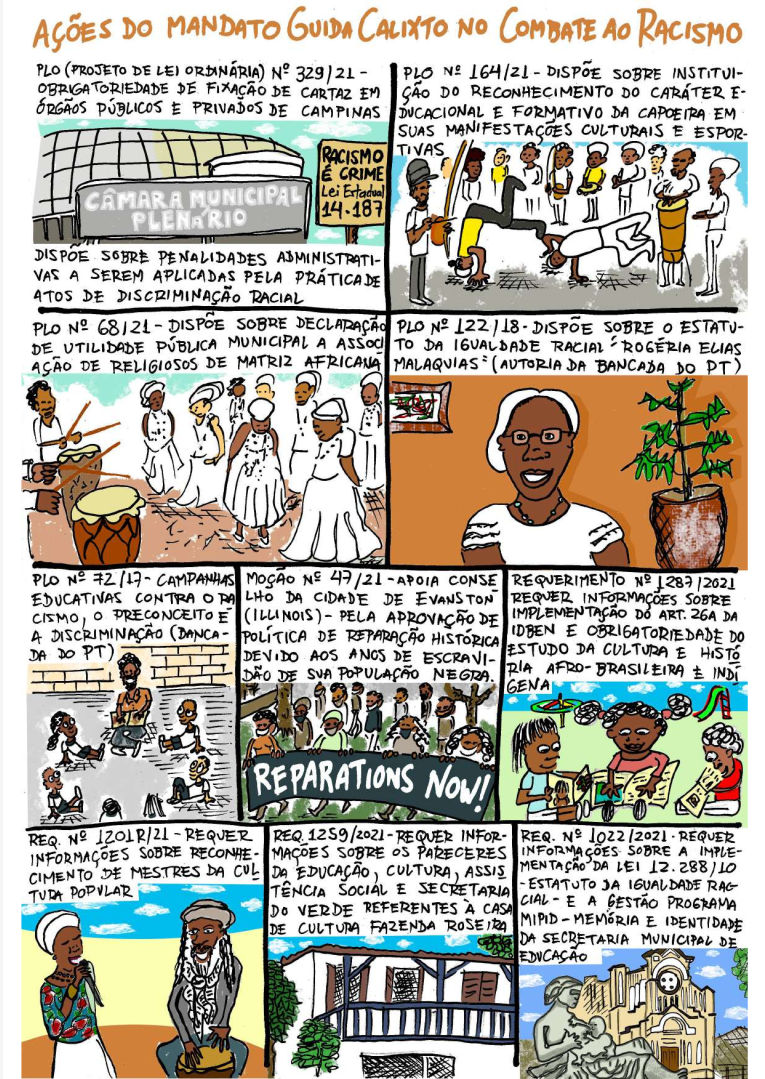 AÇÕES DO MANDATO GUIDA CALIXTO NO COMBATE AO RACISMO
PLO (PROJETO DE LEI ORDINÁRIA) Nº 329/21 -
OBRIGATORIEDADE DE FIXAÇÃO DE CARTAZ EM
ÓRGÃOS PÚBLICOS E PRIVADOS DE CAMPINAS
CÂMARA MUNICIPAL
PLENÁRIO
RACISMO
É CRIME
Lei Estadual
14.187
DISPÕE SOBRE PENALIDADES ADMINISTRATI-
VAS A SEREM APLICADAS PELA PRÁTICA DE
ATOS DE DISCRIMINAÇÃO RACIAL
PLO Nº 164/21 - DISPÕE SOBRE INSTITUI-
ÇÃO DO RECONHECIMENTO DO CARÁTER E-
DUCACIONAL E FORMATIVO DA CAPOEIRA EM
SUAS MANIFESTAÇÕES CULTURAIS E ESPOR-
TIVAS
PLO Nº 68/21 - DISPÕE SOBRE DECLARAÇÃO
DE UTILIDADE PÚBLICA MUNICIPAL A ASSOCI
AÇÃO DE RELIGIOSOS DE MATRIZ AFRICANA
PLO Nº 122/18 - DISPÕE SOBRE O ESTATU-
TO DA IGUALDADE RACIAL "ROGÉRIA ELIAS
MALAQUIAS" (AUTORIA DA BANCADA DO PT)
PLO Nº 72/17 - CAMPANHAS
EDUCATIVAS CONTRA O RA
CISMO, O PRECONCEITO E
A DISCRIMINAÇÃO (BANCA-
DA DO PT)
MOÇÃO Nº 47/21 - APOIA CONSE
LHO DA CIDADE DE EVANSTON
(ILLINOIS) - PELA APROVAÇÃO DE
POLÍTICA DE REPARAÇÃO HISTÓRICA
DEVIDO AOS ANOS DE ESCRAVI
DÃO DE SUA POPULAÇÃO NEGRA.
REPARATIONS NOW!
REQUERIMENTO Nº 1287/2021
REQUER INFORMAÇÕES SOBRE
IMPLEMENTAÇÃO DO ART. 26A DA
LDBEN E OBRIGATORIEDADE DO
ESTUDO DA CULTURA E HISTÓ
RIA AFRO-BRASILEIRA E INDÍ
GENA
REQ. Nº 1201R/21 - REQUER
INFORMAÇÕES SOBRE RECONHE-
CIMENTO DE MESTRES DA CUL
TURA POPULAR
REQ. 1259/2021 - REQUER INFOR-
MAÇÕES SOBRE OS PARECERES
DA EDUCAÇÃO, CULTURA, ASSIS
TÊNCIA SOCIAL E SECRETARIA
DO VERDE REFERENTES À CASA
DE CULTURA FAZENDA ROSEIRA
REQ. Nº 1022/2021 - REQUER
INFORMAÇÕES SOBRE A IMPLE-
MENTAÇÃO DA LEI 12.288/10
- ESTATUTO DA IGUALDADE RAC-
CIAL - E A GESTÃO PROGRAMA
MIPID - MEMÓRIA E IDENTIDADE
DA SECRETARIA MUNICIPAL DE
EDUCAÇÃO